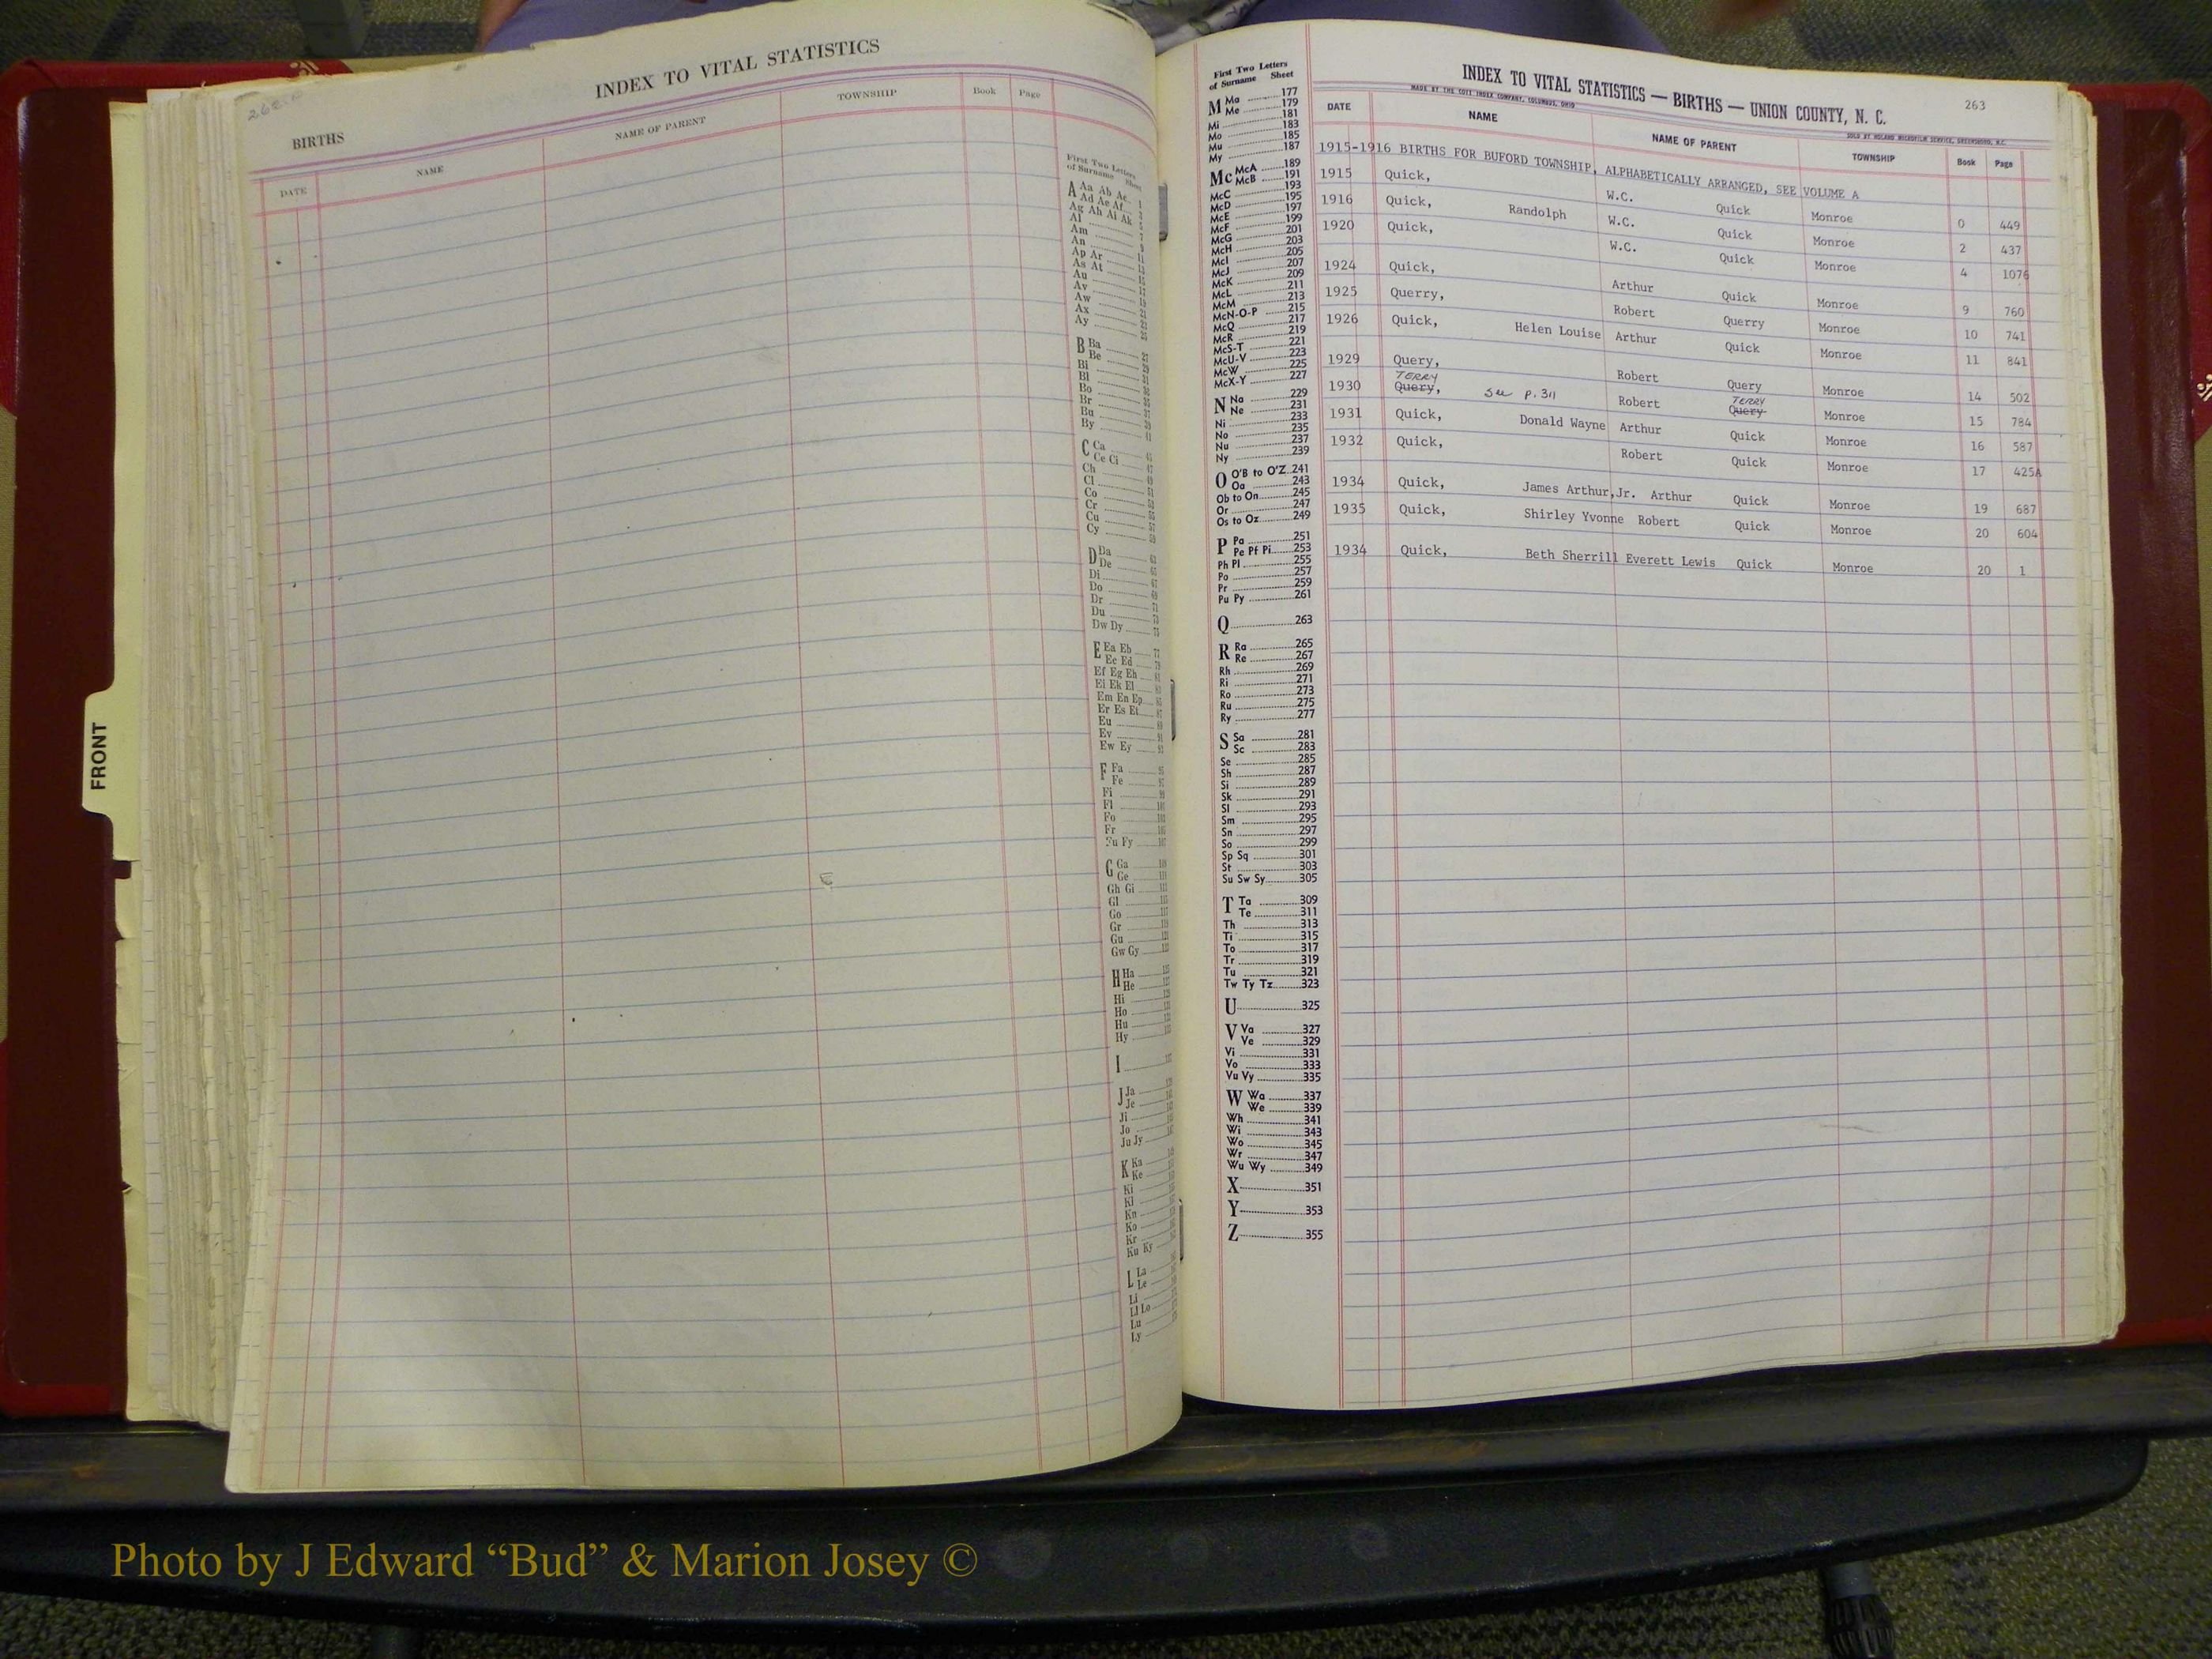 INDEX TO VITAL STATISTICS
BIRTHS
DATE NAME NAME OF PARENT TOWNSHIP Book Page
First Two Letters
of Surname Sheet
A Aa Ab Ac
Ad Ae Af
Ag Ah Ai Ak
Al
Am
An
Ap Ar
As At
Au
Av
Aw
Ax
Ay
B Ba
Be
Bi
Bl
Bo
Br
Bu
By
C Ca
Ce Ci
Ch
Cl
Co
Cr
Cu
Cy
D Da
De
Di
Do
Dr
Du
Dw Dy
E Ea Eb
Ec Ed
Ef Eg Eh
Ei Ek El
Em En Ep
Er Es Et
Eu
Ev
Ew Ey
F Fa
Fe
Fi
Fl
Fo
Fr
Fu Fy
G Ga
Ge
Gh Gi
Gl
Go
Gr
Gu
Gw Gy
H Ha
He
Hi
Ho
Hu
Hy
I
J Ja
Je
Ji
Jo
Ju Jy
K Ka
Ke
Ki
Kl
Kn
Ko
Kr
Ku Ky
L La
Le
Li
Ll Lo
Lu
Ly
FRONT
First Two Letters
of Surname Sheet
M Ma 177
Me 179
181
Mi 183
Mo 185
Mu 187
My
Mc McA 189
McB 191
McC 193
McD 195
McE 197
McF 199
McG 201
McH 203
McI 205
McJ 207
McK 209
McL 211
McM 213
McN-O-P 215
McQ 217
McR 219
McS-T 221
McU-V 223
McW 225
McX-Y 227
N Na 229
Ne 231
Ni 233
No 235
Nu 237
Ny 239
O O'B to O'Z 241
Oa 243
Ob to On 245
Or 247
Os to Oz 249
P Pa 251
Pe Pf Pi 253
Ph Pl 255
Po 257
Pr 259
Pu Py 261
Q 263
R Ra 265
Re 267
Rh 269
Ri 271
Ro 273
Ru 275
Ry 277
S Sa 281
Sc 283
Se 285
Sh 287
Si 289
Sk 291
Sl 293
Sm 295
Sn 297
So 299
Sp Sq 301
St 303
Su Sw Sy 305
T Ta 309
Te 311
Th 313
Ti 315
To 317
Tr 319
Tu 321
Tw Ty Tz 323
U 325
V Va 327
Ve 329
Vi 331
Vo 333
Vu Vy 335
W Wa 337
We 339
Wh 341
Wi 343
Wo 345
Wr 347
Wu Wy 349
X 351
Y 353
Z 355
INDEX TO VITAL STATISTICS — BIRTHS — UNION COUNTY, N. C. 263
MADE BY THE COTT INDEX COMPANY, COLUMBUS, OHIO
SOLD BY ROLAND MICROFILM SERVICE, GREENSBORO, N.C.
DATE NAME NAME OF PARENT TOWNSHIP Book Page
1915-1916 BIRTHS FOR BUFORD TOWNSHIP, ALPHABETICALLY ARRANGED, SEE VOLUME A
1915 Quick, W.C. Quick Monroe 0 449
1916 Quick, Randolph W.C. Quick Monroe 2 437
1920 Quick, W.C. Quick Monroe 4 1076
1924 Quick, Arthur Quick Monroe 9 760
1925 Querry, Robert Querry Monroe 10 741
1926 Quick, Helen Louise Arthur Quick Monroe 11 841
1929 Query, Robert Query Monroe 14 502
TERRY TERRY
1930 Query, See p. 311 Robert Query Monroe 15 784
1931 Quick, Donald Wayne Arthur Quick Monroe 16 587
1932 Quick, Robert Quick Monroe 17 425A
1934 Quick, James Arthur,Jr. Arthur Quick Monroe 19 687
1935 Quick, Shirley Yvonne Robert Quick Monroe 20 604
1934 Quick, Beth Sherrill Everett Lewis Quick Monroe 20 1
Photo by J Edward “Bud” & Marion Josey ©